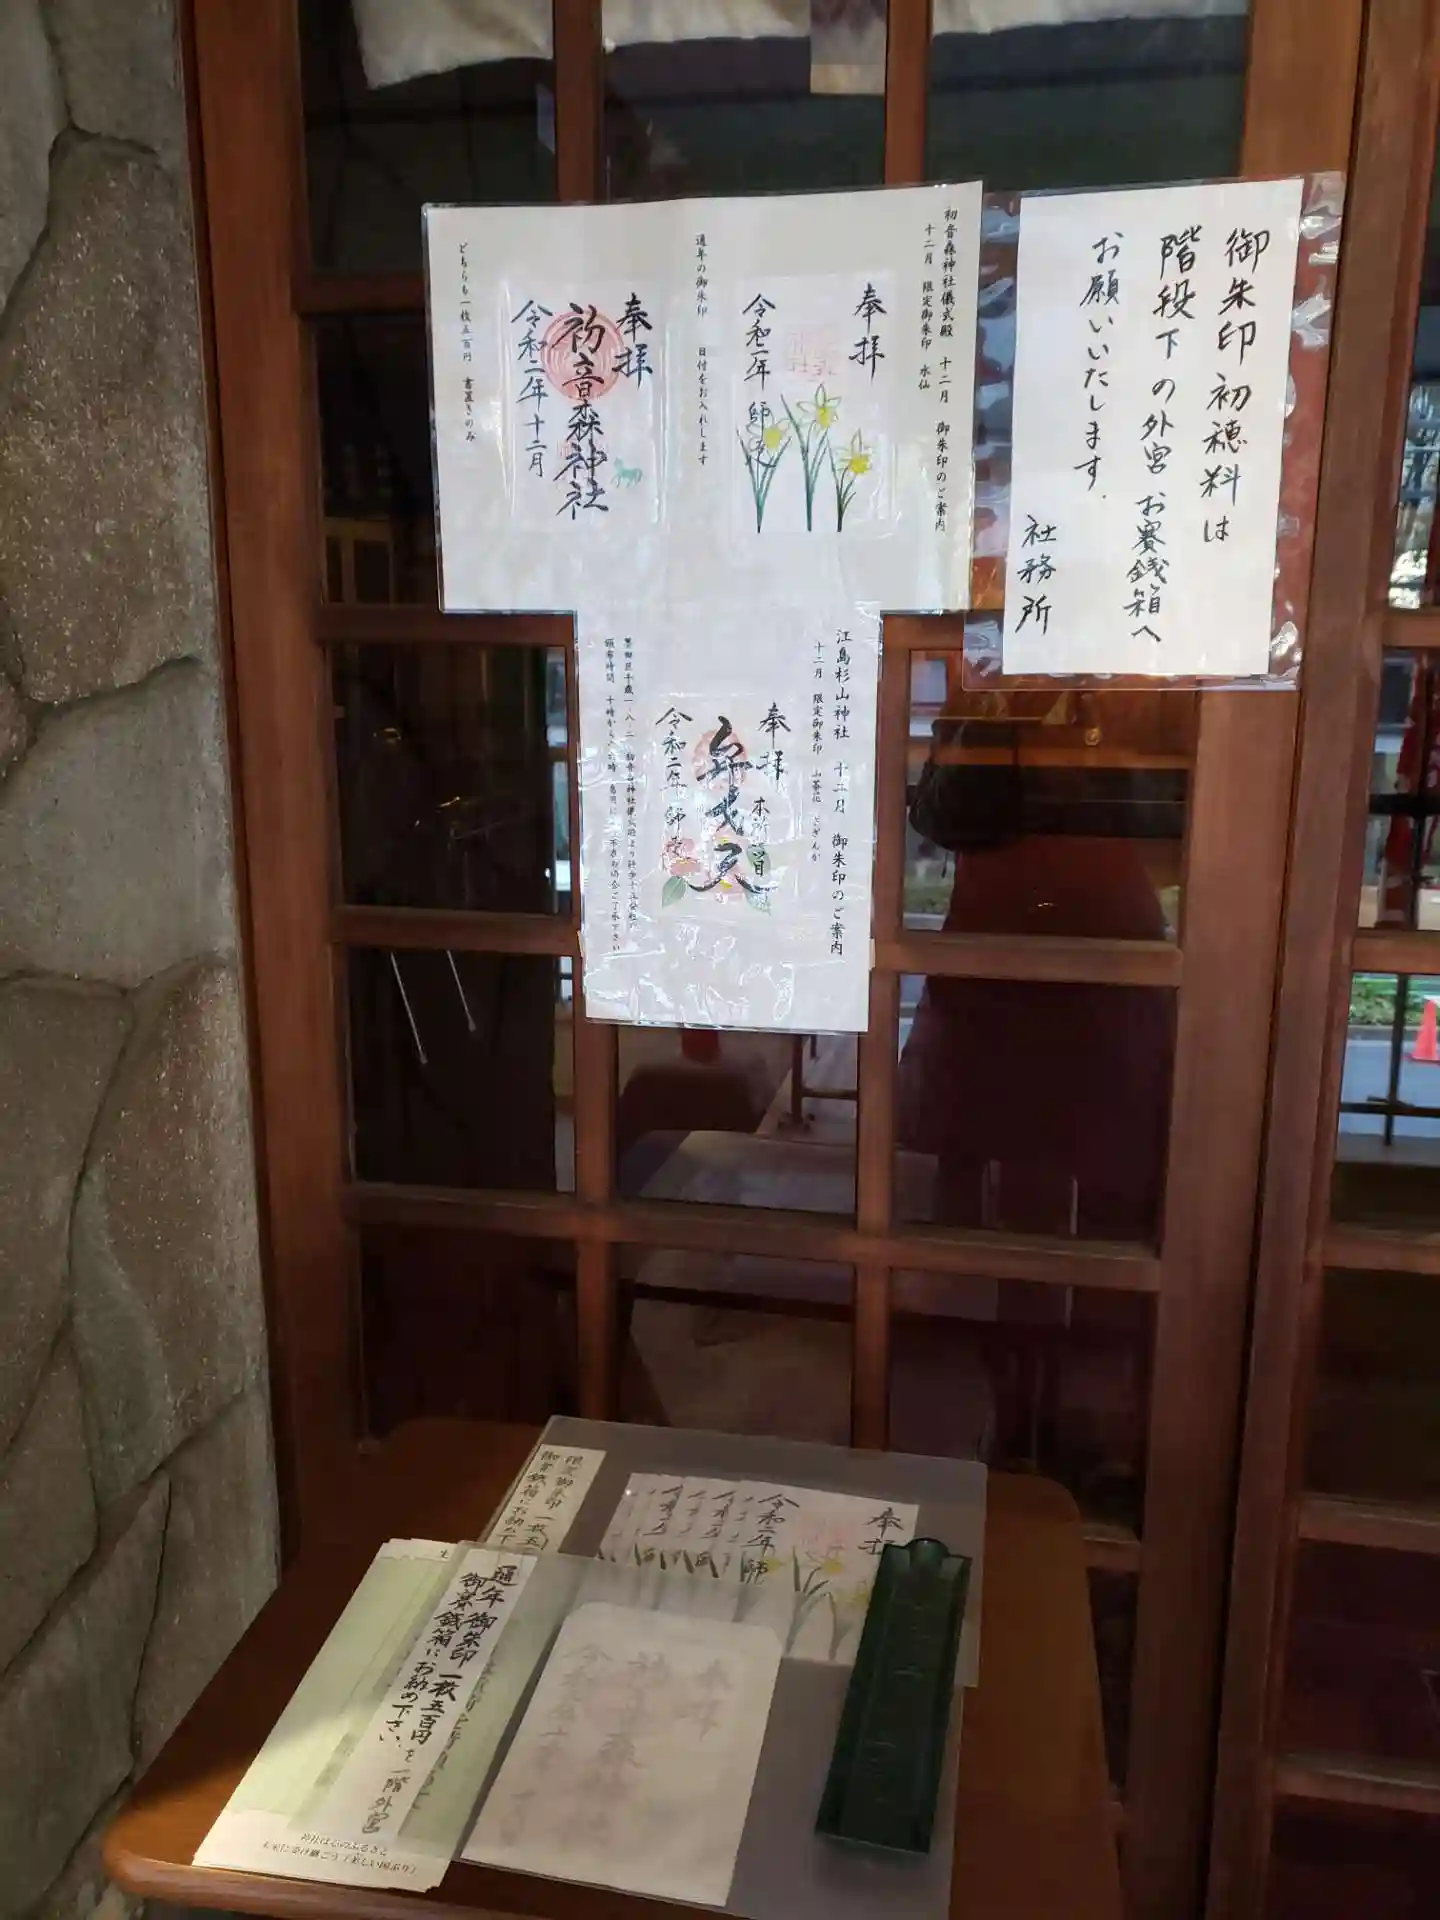 御朱印初穂料は
階段下の外宮お賽銭箱へ
お願いいたします.
社務所
初音森神社儀式殿 十二月 御朱印のご案内
十二月 限定御朱印 水仙
奉拝
令和二年 師走
通年の御朱印 日付をお入れします
奉拝
初音森神社
令和二年十二月
どちらも一枚五百円 書置きのみ
江島杉山神社 十二月 御朱印のご案内
十二月 限定御朱印 山茶花 さざんか
奉拝
令和二年 師走
墨田区千歳一‐八‐二
頒布時間 十時から
限定御朱印 一枚五
御賽銭箱にお納め下
奉拝
令和二年 師
通年御朱印一枚五百円を一階外宮
御賽銭箱にお納め下さい.